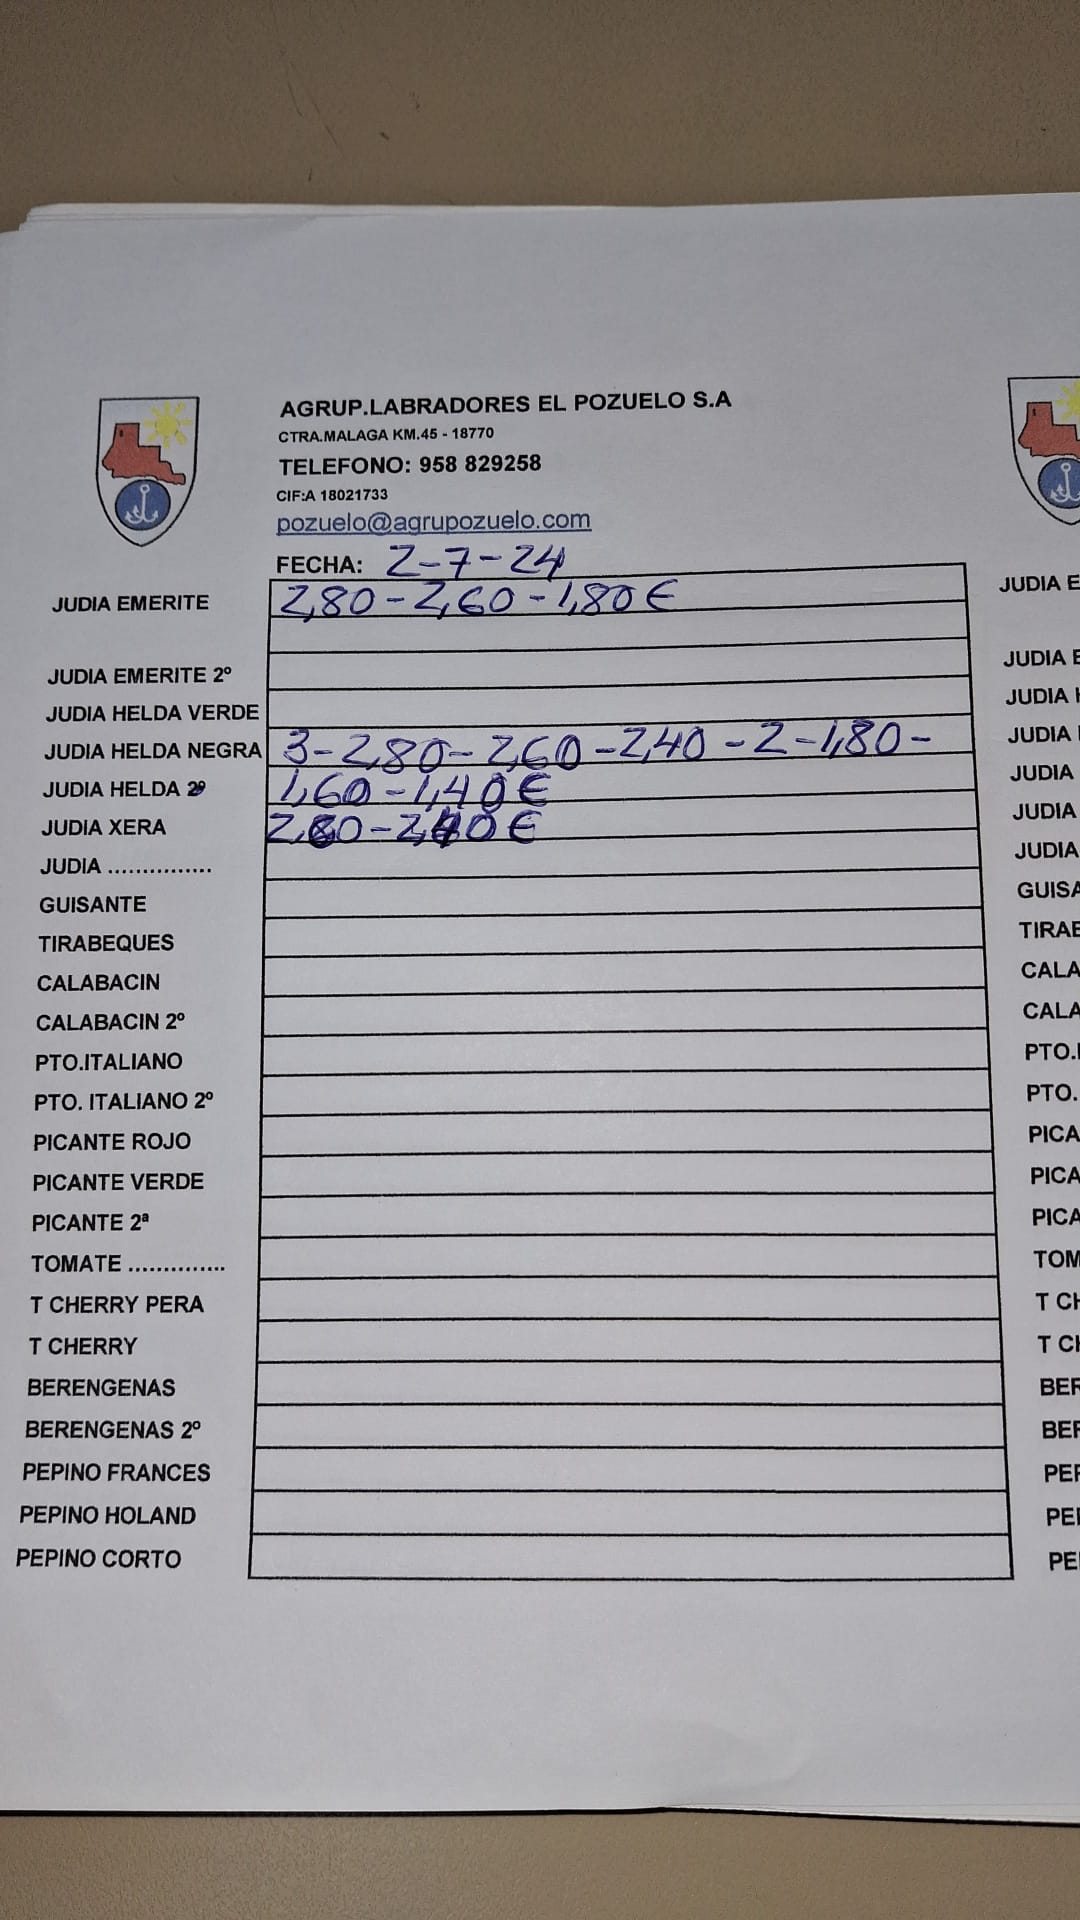 AGRUP.LABRADORES EL POZUELO S.A
CTRA.MALAGA KM.45 - 18770
TELEFONO: 958 829258
CIF:A 18021733
pozuelo@agrupozuelo.com
FECHA: 2-7-24
JUDIA EMERITE 2,80-2,60-1,80€
JUDIA EMERITE 2º
JUDIA HELDA VERDE
JUDIA HELDA NEGRA 3-2,80-2,60-2,40-2-1,80-
JUDIA HELDA 2º 1,60-1,40€
JUDIA XERA
JUDIA ...............
GUISANTE
TIRABEQUES
CALABACIN
CALABACIN 2º
PTO.ITALIANO
PTO. ITALIANO 2º
PICANTE ROJO
PICANTE VERDE
PICANTE 2ª
TOMATE ..............
T CHERRY PERA
T CHERRY
BERENGENAS
BERENGENAS 2º
PEPINO FRANCES
PEPINO HOLAND
PEPINO CORTO
JUDIA E
JUDIA E
JUDIA H
JUDIA
JUDIA
JUDIA
JUDIA
GUISA
TIRAB
CALA
CALA
PTO.I
PTO.
PICA
PICA
PICA
TOM
T CH
T CH
BER
BER
PEP
PE
PE